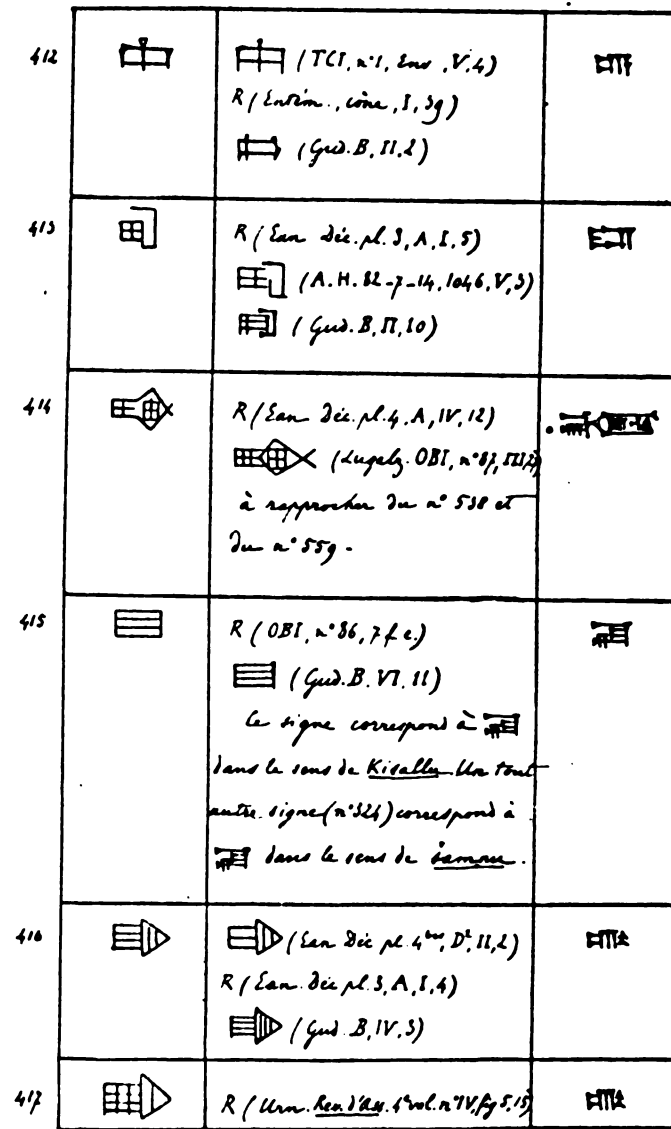 412
(TCI, n°1, Ens, V, 4)
R (Entém., cône, I, 39)
(Gud. B, II, 2)
413
R (Ean. Déc. pl. 3, A, I, 5)
(A.H. 82-7-14, 1046, V, 3)
(Gud. B, II, 10)
414
R (Ean. Déc. pl. 4, A, IV, 12)
(Lugalz. OBI, n° 87,
à rapprocher du n° 538 et
du n° 559.
415
R (OBI, n° 86, 7 f.e.)
(Gud. B. VI, 11)
Ce signe correspond à
dans le sens de Kisallu. Un tout
autre signe (n° 324) correspond à
dans le sens de šamnu.
416
(Ean. Déc. pl. 4bis, D², II, 2)
R (Ean. Déc. pl. 3, A, I, 4)
(Gud. B, IV, 3)
417
R (Urn. Rev. d'Ass. 4e vol. n° IV, fig 5, 15)